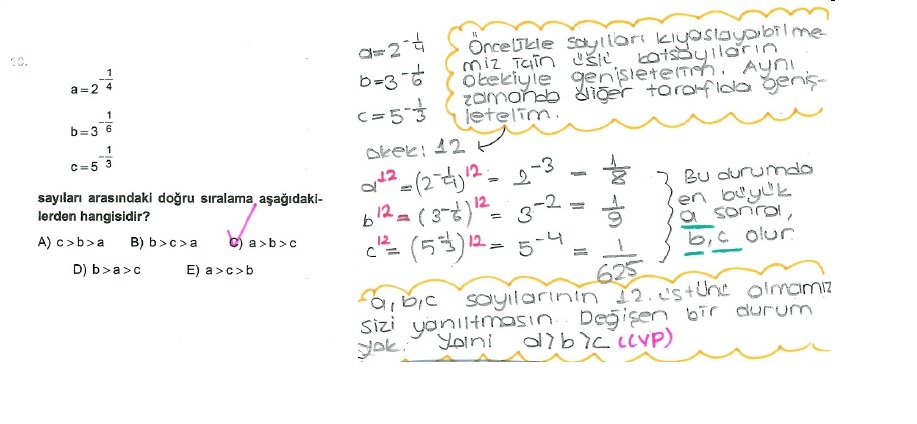 10.
a=2^{-1/4}
b=3^{-1/6}
c=5^{-1/3}
sayıları arasındaki doğru sıralama aşağıdaki-
lerden hangisidir?
A) c>b>a B) b>c>a C) a>b>c
D) b>a>c E) a>c>b
a=2^{-1/4}
b=3^{-1/6}
c=5^{-1/3}
Öncelikle sayıları kıyaslayabilme
miz için üslü katsayıların
okekiyle genişletelim. Aynı
zamanda diğer tarafıda geniş-
letelim.
okek: 12
a^{12} = (2^{-1/4})^{12} = 2^{-3} = 1/8
b^{12} = (3^{-1/6})^{12} = 3^{-2} = 1/9
c^{12} = (5^{-1/3})^{12} = 5^{-4} = 1/625
Bu durumda
en büyük
a sonra,
b, c olur.
a, b, c sayılarının 12. üstünü almamız
sizi yanıltmasın. Değişen bir durum
yok. Yani a>b>c (CVP)